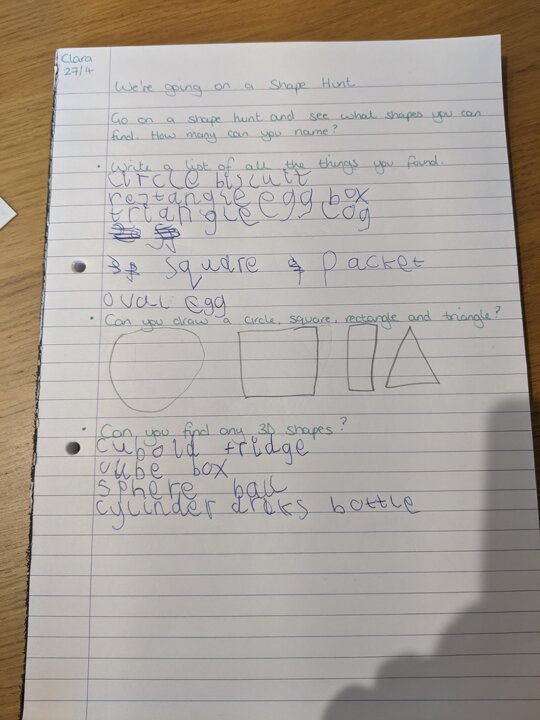 Clara
27/4
We're going on a Shape Hunt
Go on a shape hunt and see what shapes you can
find. How many can you name?
• Write a list of all the things you found.
circle biscuit
rectangle egg box
triangle cog
square packet
oval egg
• Can you draw a circle, square, rectangle and triangle?
• Can you find any 3D shapes?
cuboid fridge
cube box
sphere ball
cylinder drinks bottle